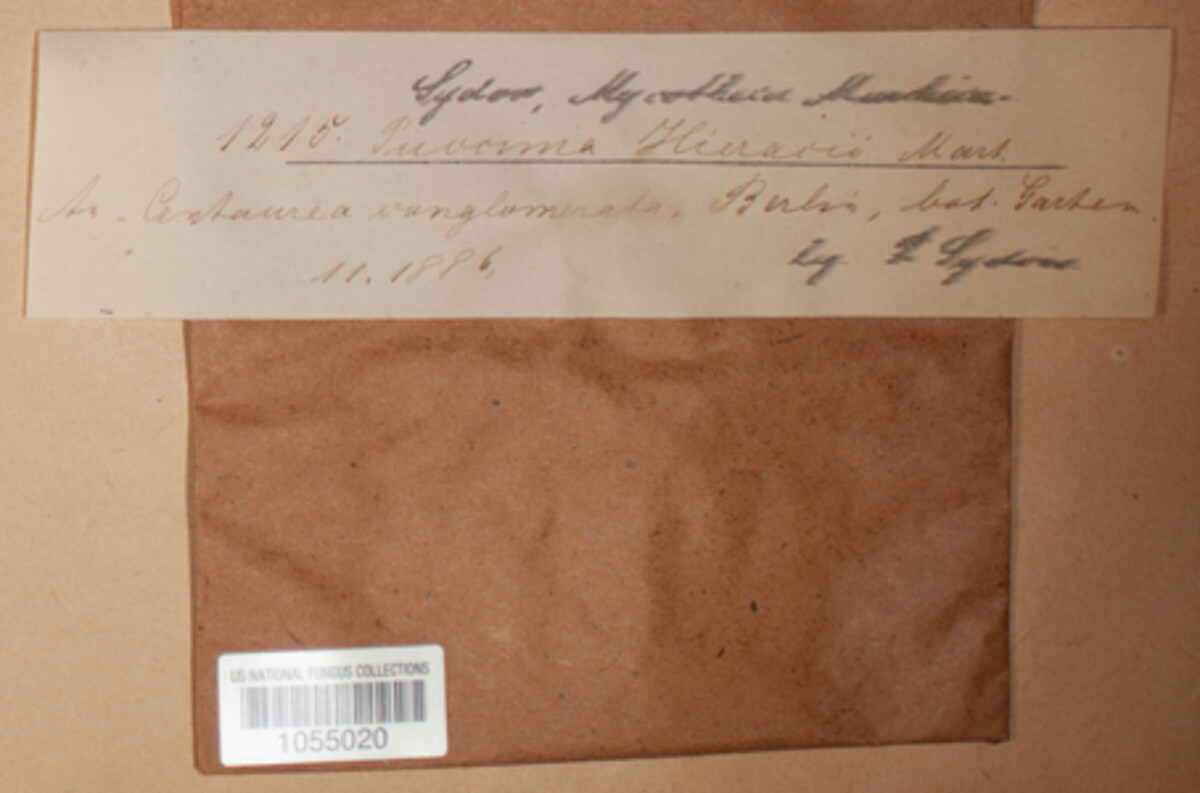 Sydow, Mycotheca Marchica.
1215. Puccinia Hieracii Mart.
An Centaurea conglomerata, Berlin, bot. Garten.
11. 1886, lg. P Sydow
US NATIONAL FUNGUS COLLECTIONS
1055020